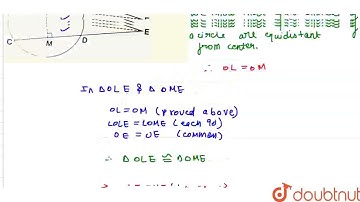 C
M
D
E
a circle are equidistant
from center.
∴ OL = OM
In △OLE & △OME
OL = OM (proved above)
∠OLE = ∠OME (each 90)
OE = OE (common)
∴ △OLE ≅ △OME
doubtnut